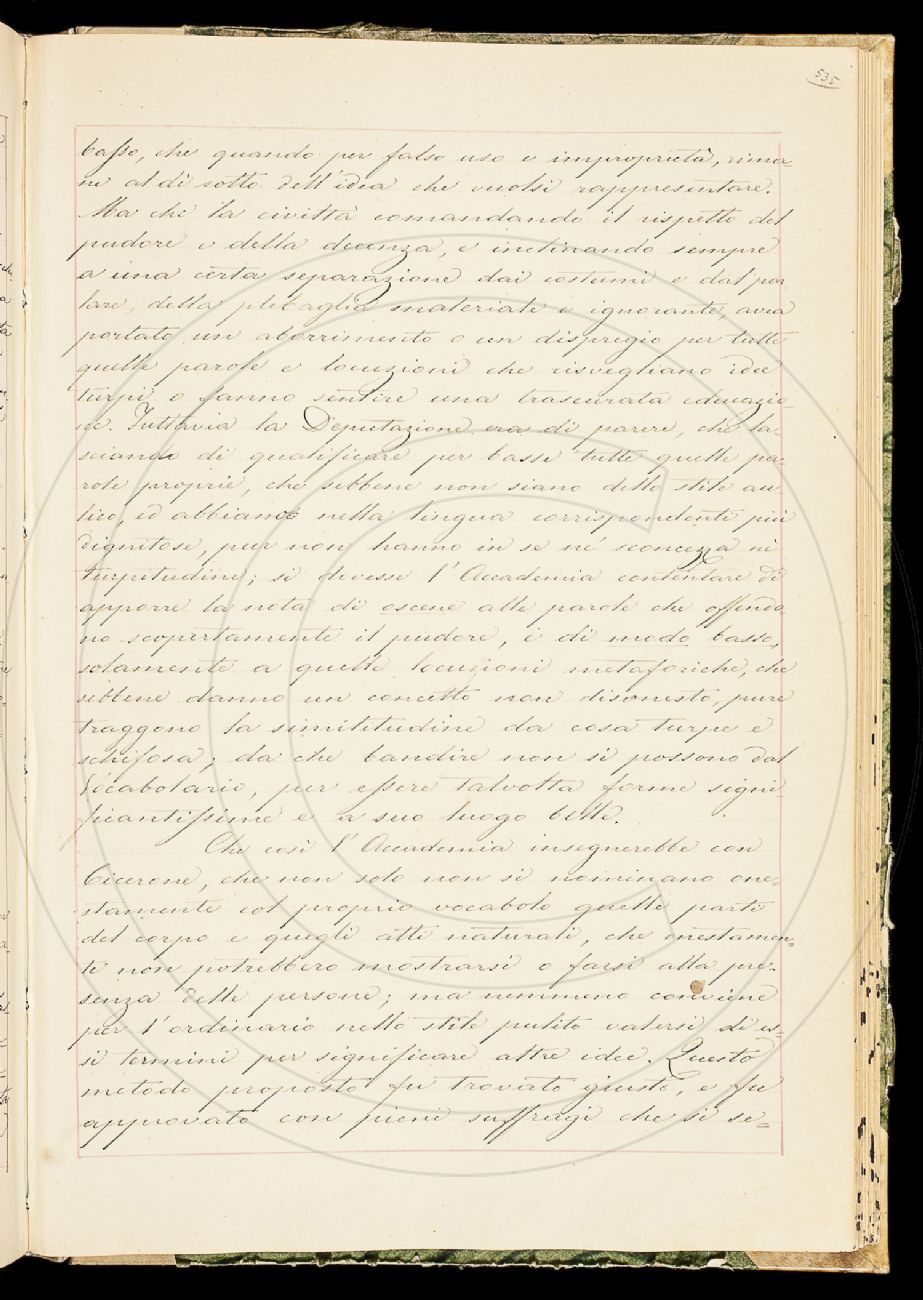 535
basso, che quando per falso uso e improprietà, rima
ne al di sotto dell'idea che vuolsi rappresentare.
Ma che la civiltà comandando il rispetto del
pudore e della decenza, e inclinando sempre
a una certa separazione dai costumi e dal par
lare, della plebaglia materiale e ignorante, avea
portato un aborrimento o un dispregio per tutte
quelle parole e locuzioni che risvegliano idee
turpi o fanno sentire una trascurata educazio-
ne. Tuttavia la Deputazione era di parere, che la-
sciando di qualificare per basse tutte quelle pa-
role proprie, che sebbene non siano dello stile au-
lico, ed abbiano nella lingua corrispondenti più
dignitose, pur non hanno in se nè sconcezza nè
turpitudine; si dovesse l'Accademia contentare di
apporre la nota di oscene alle parole che offendo-
no scopertamente il pudore, e di modo basso,
solamente a quelle locuzioni metaforiche, che
sebbene danno un concetto non disonesto, pure
traggono la similitudine da cosa turpe e
schifosa; da che bandire non si possono dal
Vocabolario, per essere talvolta forme signi-
ficantissime e a suo luogo belle.
Che così l'Accademia insegnerebbe con
Cicerone, che non solo non si nominano one-
stamente col proprio vocabolo quelle parti
del corpo e quegli atti naturali, che onestamen=
te non potrebbero mostrarsi o farsi alla pre-
senza delle persone; ma nemmeno conviene
per l'ordinario nello stile pulito valersi di es-
si termini per significare altre idee. Questo
metodo proposto fu trovato giusto, e fu
approvato con pieni suffragi che si se=